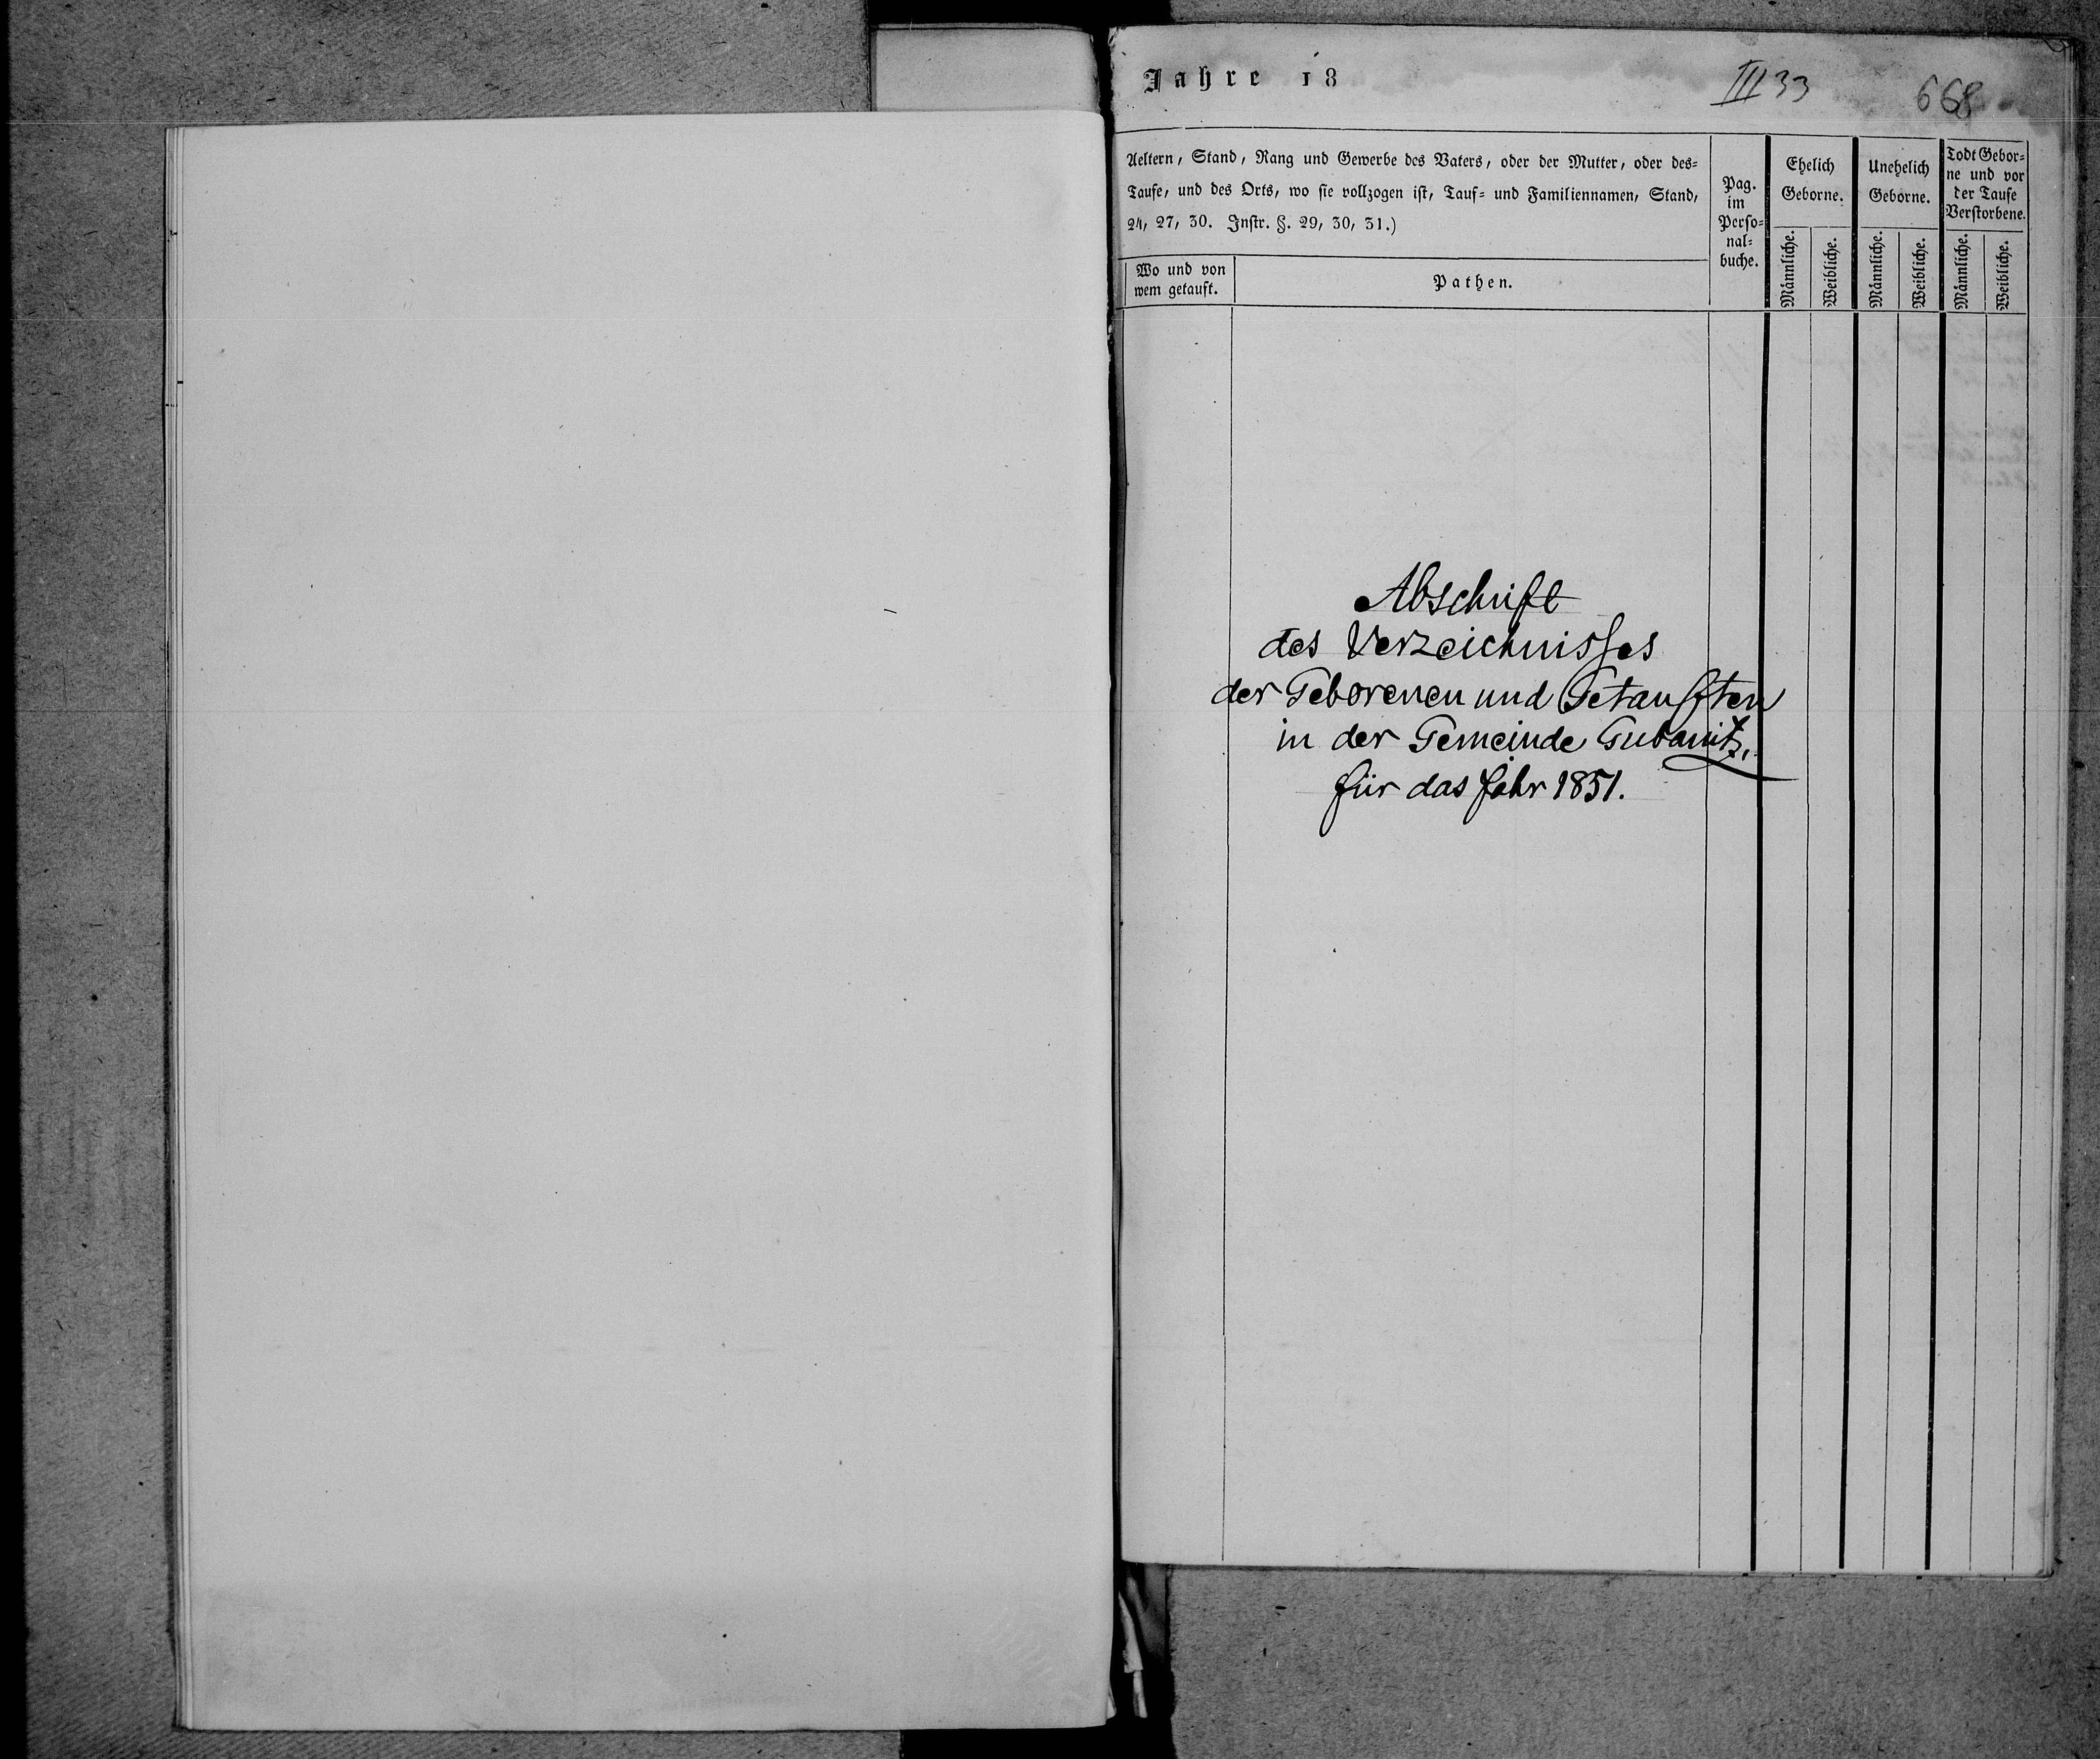 Jahre 18
III 33
668
Aeltern, Stand, Rang und Gewerbe des Vaters, oder der Mutter, oder des-
Taufe, und des Orts, wo sie vollzogen ist, Tauf- und Familiennamen, Stand,
24, 27, 30. Instr. §. 29, 30, 31.)
Wo und von
wem getauft.
Pathen.
Pag.
im
Perso-
nal-
buche.
Ehelich
Geborne.
Männliche.
Weibliche.
Unehelich
Geborne.
Männliche.
Weibliche.
Todt Gebor-
ne und vor
der Taufe
Verstorbene.
Männliche.
Weibliche.
Abschrift
des Verzeichnisses
der Geborenen und Getauften
in der Gemeinde Gubanitz,
für das Jahr 1851.